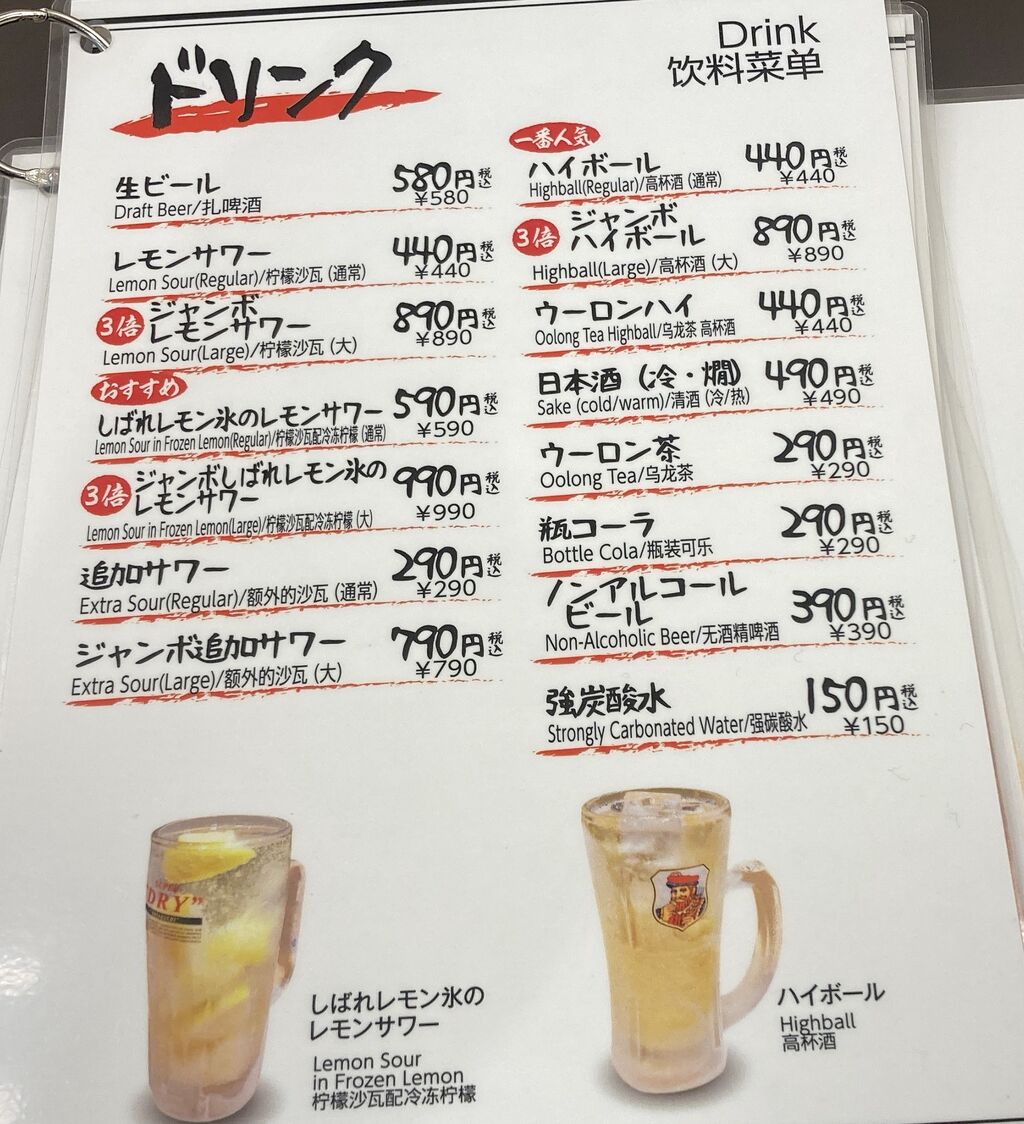 ドリンク
Drink
饮料菜单
生ビール 580円税込
Draft Beer/扎啤酒 ¥580
レモンサワー 440円税込
Lemon Sour(Regular)/柠檬沙瓦 (通常) ¥440
3倍 ジャンボ
レモンサワー 890円税込
Lemon Sour(Large)/柠檬沙瓦 (大) ¥890
おすすめ
しばれレモン氷のレモンサワー 590円税込
Lemon Sour in Frozen Lemon(Regular)/柠檬沙瓦配冷冻柠檬 (通常) ¥590
3倍 ジャンボしばれレモン氷の
レモンサワー 990円税込
Lemon Sour in Frozen Lemon(Large)/柠檬沙瓦配冷冻柠檬 (大) ¥990
追加サワー 290円税込
Extra Sour(Regular)/额外的沙瓦 (通常) ¥290
ジャンボ追加サワー 790円税込
Extra Sour(Large)/额外的沙瓦 (大) ¥790
一番人気
ハイボール 440円税込
Highball(Regular)/高杯酒 (通常) ¥440
3倍 ジャンボ
ハイボール 890円税込
Highball(Large)/高杯酒 (大) ¥890
ウーロンハイ 440円税込
Oolong Tea Highball/乌龙茶 高杯酒 ¥440
日本酒 (冷・燗) 490円税込
Sake (cold/warm)/清酒 (冷/热) ¥490
ウーロン茶 290円税込
Oolong Tea/乌龙茶 ¥290
瓶コーラ 290円税込
Bottle Cola/瓶装可乐 ¥290
ノンアルコール
ビール 390円税込
Non-Alcoholic Beer/无酒精啤酒 ¥390
強炭酸水 150円税込
Strongly Carbonated Water/强碳酸水 ¥150
SUPER
DRY"
しばれレモン氷の
レモンサワー
Lemon Sour
in Frozen Lemon
柠檬沙瓦配冷冻柠檬
ハイボール
Highball
高杯酒